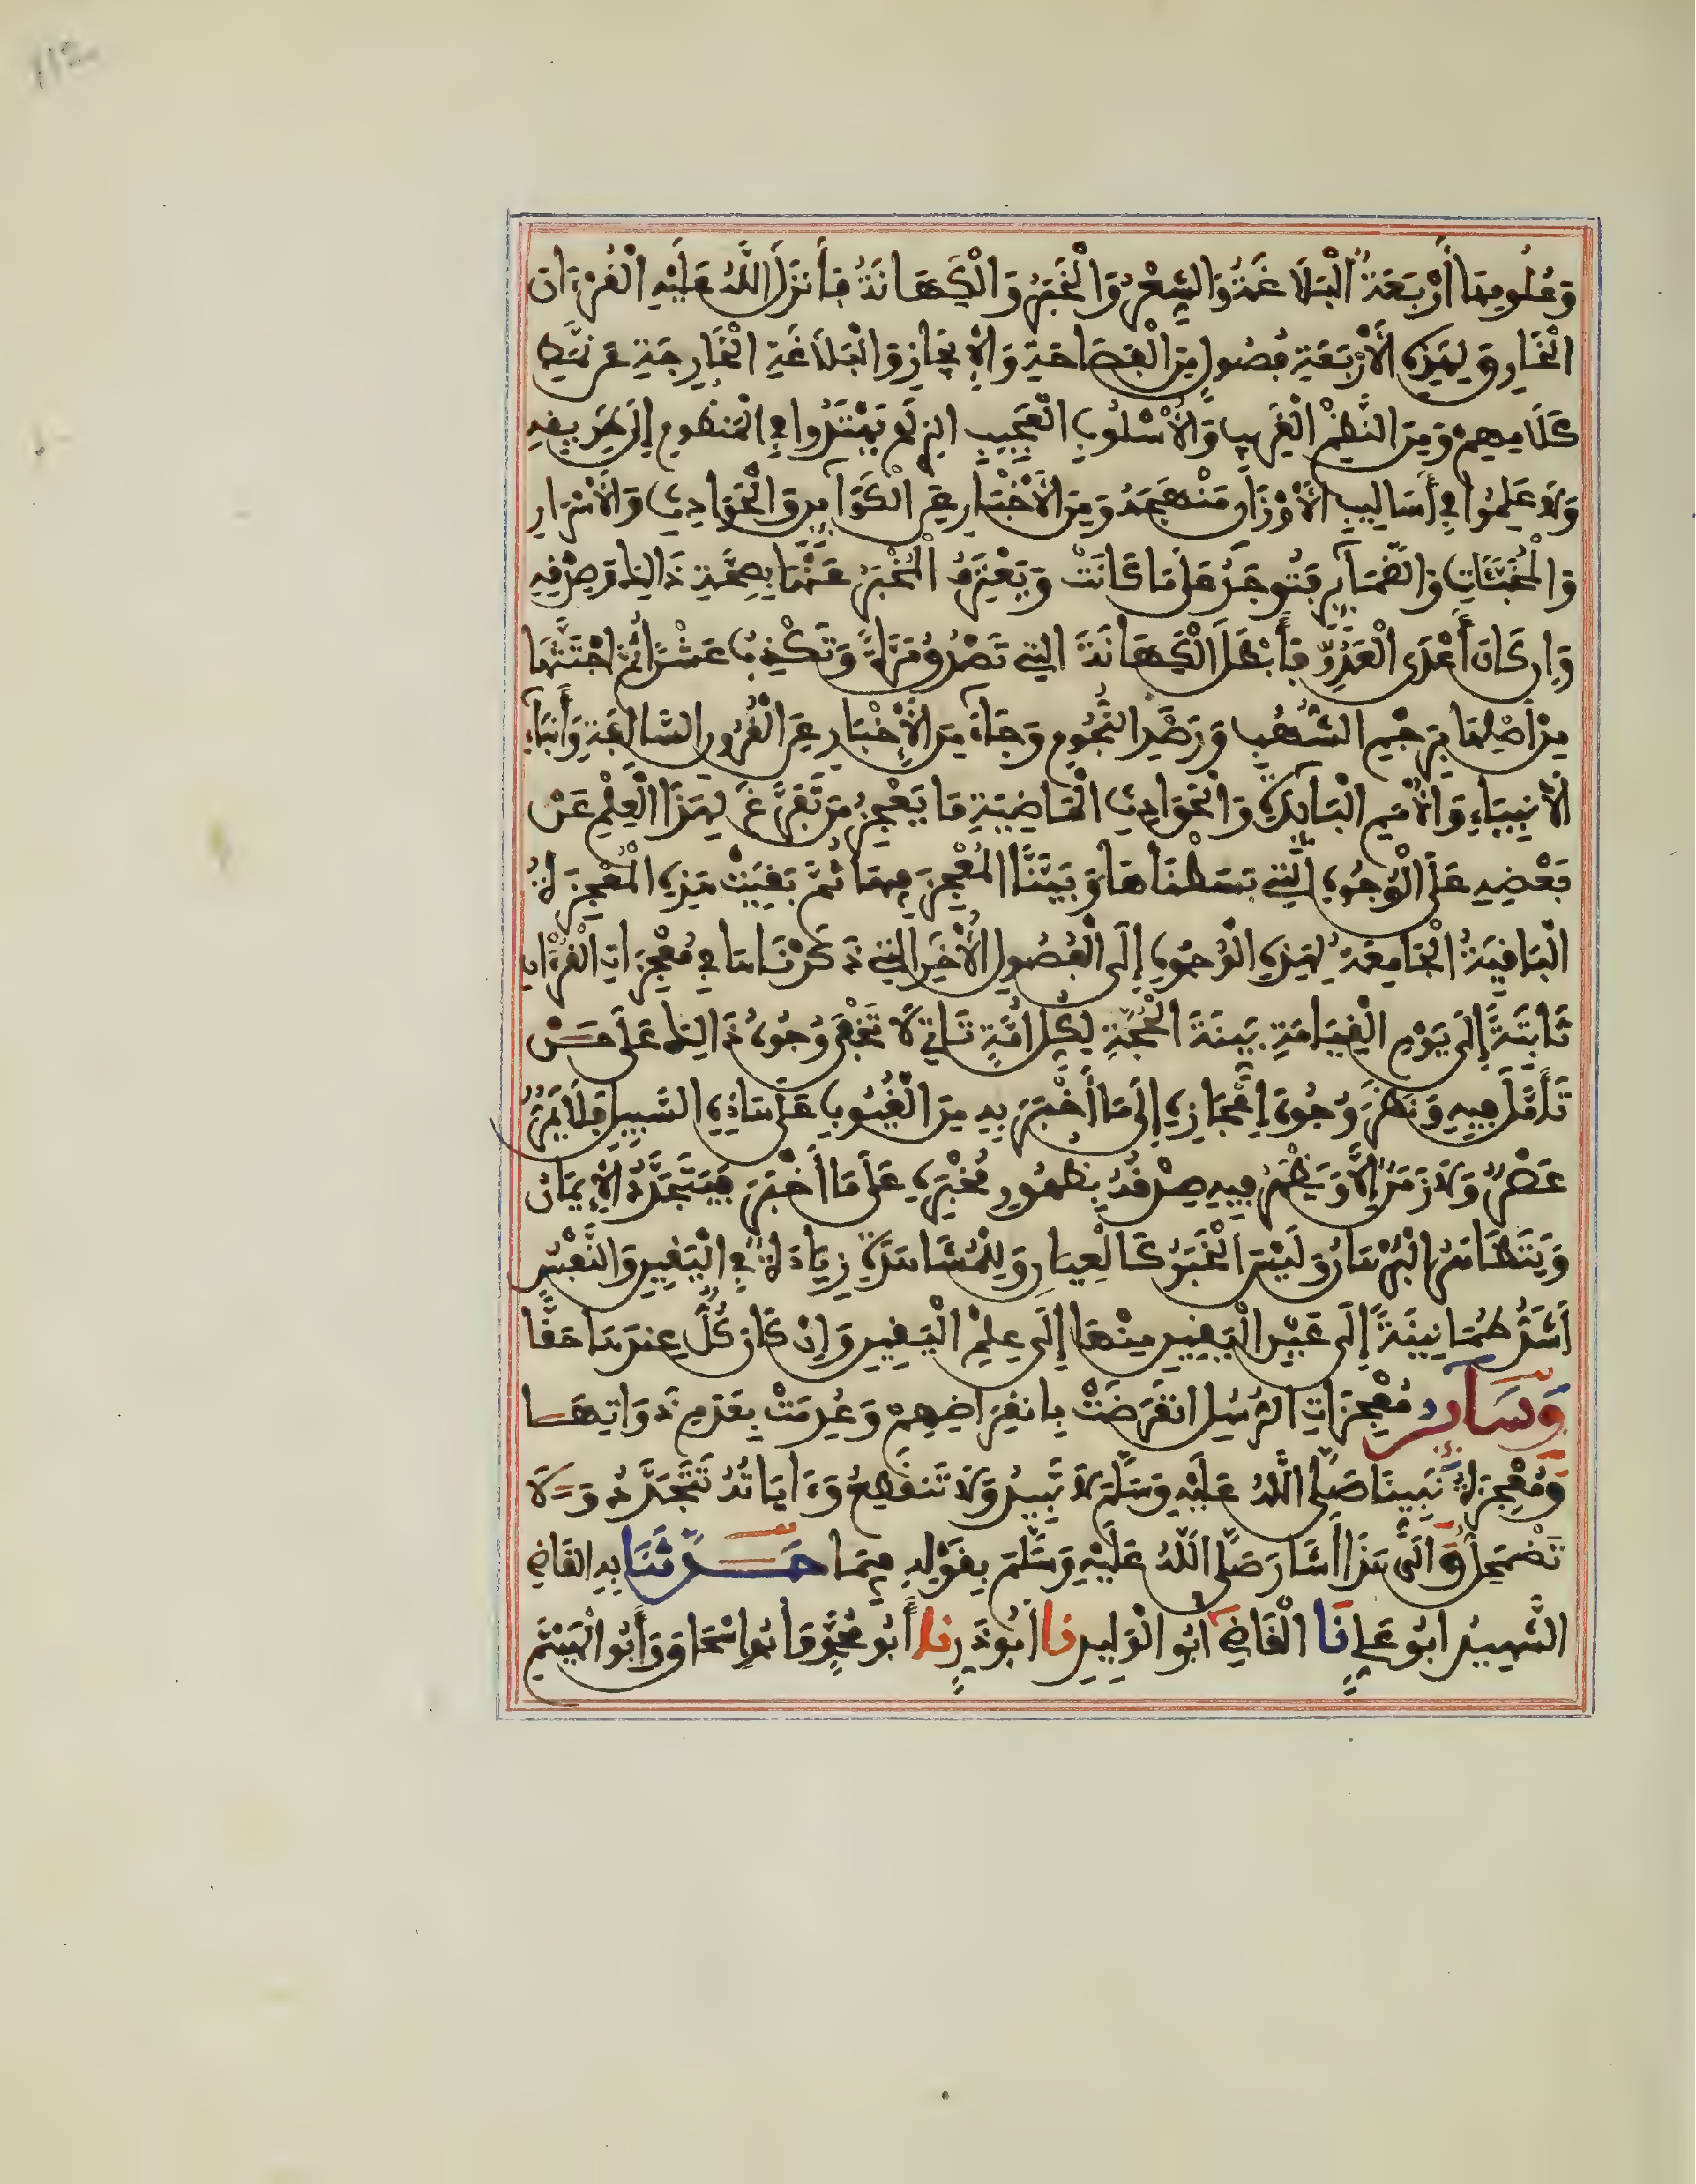 وَعُلُومِهَا أَرْبَعَةٌ الْبَلَاغَةُ وَالشِّعْرُ وَالْخَبَرُ وَالْكِهَانَةُ فَأَنزَلَ اللَّهُ عَلَيْهِ الْقُرْءَانَ
الْخَارِقَ لِهَذِهِ الْأَرْبَعَةِ فُصُولٍ مِنَ الْفَصَاحَةِ وَالْإِيجَازِ وَالْبَلَاغَةِ الْخَارِجَةِ عَن نَمَطِ
كَلَامِهِمْ وَمِنَ النَّظْمِ الْغَرِيبِ وَالْأُسْلُوبِ الْعَجِيبِ الذِي لَمْ يَهْتَدُوا فِي الْمَنظُومِ إِلَى طَرِيقِهِ
وَلَا عَلِمُوا فِي أَسَالِيبِ الْأَوْزَانِ مَنْهَجَهُ وَمِنَ الْأَخْبَارِ عَنِ الْكَوَآئِنِ وَالْحَوَادِثِ وَالْأَسْرَارِ
وَالْمُخَبَّئَاتِ وَالضَّمَآئِرِ فَتُوجَدُ عَلَى مَا كَانَتْ وَيَعْتَرِفُ الْمُخْبَرُ عَنْهَا بِصِحَّةِ ذَالِكَ وَصِدْقِهِ
وَإِن كَانَ أَعْدَى الْعَدُوِّ فَأَبْطَلَ الْكِهَانَةَ التِي تَصْدُقُ مَرَّةً وَتَكْذِبُ عَشْرًا ثُمَّ اجْتَثَّهَا
مِنْ أَصْلِهَا بِرَجْمِ الشُّهُبِ وَرَصْدِ النُّجُومِ وَجَاءَ مِنَ الْأَخْبَارِ عَنِ الْقُرُونِ السَّالِفَةِ وَأَنبَاءِ
الْأَنبِيَاءِ وَالْأُمَمِ الْبَائِدَةِ وَالْحَوَادِثِ الْمَاضِيَةِ مَا يَعْجِزُ مَن تَفَرَّغَ لِهَذَا الْعِلْمِ عَنْ
بَعْضِهِ عَلَى الْوُجُوهِ الَّتِي بَسَطْنَاهَا وَبَيَّنَّا الْمُعْجِزَ فِيهَا ثُمَّ بَقِيَتْ هَذِهِ الْمُعْجِزَةُ
الْبَاقِيَةُ الْجَامِعَةُ لِهَذِهِ الْوُجُوهِ إِلَى الْفُصُولِ الْأُخَرِ التِي ذَكَرْنَاهَا فِي مُعْجِزَاتِ الْقُرْءَانِ
ثَابِتَةً إِلَى يَوْمِ الْقِيَامَةِ بَيِّنَةَ الْحُجَّةِ لِكُلِّ أُمَّةٍ تَاتِي لَا تَخْفَى وُجُوهُ ذَالِكَ عَلَى مَنْ
تَأَمَّلَ فِيهِ وَنَظَرَ وُجُوهَ إِعْجَازِهِ إِلَى مَا أَخْبَرَ بِهِ مِنَ الْغُيُوبِ عَلَى هَاذِهِ السَّبِيلِ فَلَا يَمُرُّ
عَصْرٌ وَلَا زَمَنٌ إِلَّا وَيَظْهَرُ فِيهِ صِدْقُهُ بِظُهُورِ مُخْبَرِهِ عَلَى مَا أَخْبَرَ فَيَتَجَدَّدُ الْإِيمَانُ
وَيَتَظَاهَرُ الْبُرْهَانُ وَلَيْسَ الْخَبَرُ كَالْعِيَانِ وَلِلْمُشَاهَدَةِ زِيَادَةٌ فِي الْيَقِينِ وَالنَّفْسُ
أَشَدُّ طُمَانِينَةً إِلَى عَيْنِ الْيَقِينِ مِنْهَا إِلَى عِلْمِ الْيَقِينِ وَإِنْ كَانَ كُلٌّ عِندَهَا حَقًّا
وَسَآئِرُ مُعْجِزَاتِ الرُّسُلِ انقَرَضَتْ بِانقِرَاضِهِمْ وَعُدِمَتْ بِعَدَمِ ذَوَاتِهَا
وَمُعْجِزَةُ نَبِيِّنَا صَلَّى اللَّهُ عَلَيْهِ وَسَلَّمَ لَا تَبِيدُ وَلَا تَنقَطِعُ وَءَايَاتُهُ تَتَجَدَّدُ وَلَا
تَضْمَحِلُّ وَإِلَى هَذَا أَشَارَ صَلَّى اللَّهُ عَلَيْهِ وَسَلَّمَ بِقَوْلِهِ فِيمَا حَدَّثَنَا بِهِ الْقَاضِي
الشَّهِيدُ أَبُو عَلِي نَا الْقَاضِي أَبُو الْوَلِيدِ نَا أَبُو ذَرٍّ نَا أَبُو مُحَمَّدٍ وَأَبُو إِسْحَاقَ وَأَبُو الْهَيْثَمِ